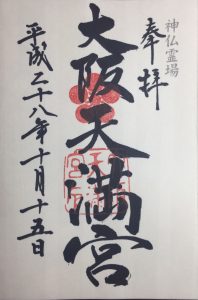 神仏霊場
奉拝
大阪天満宮
平成二十八年十月十五日